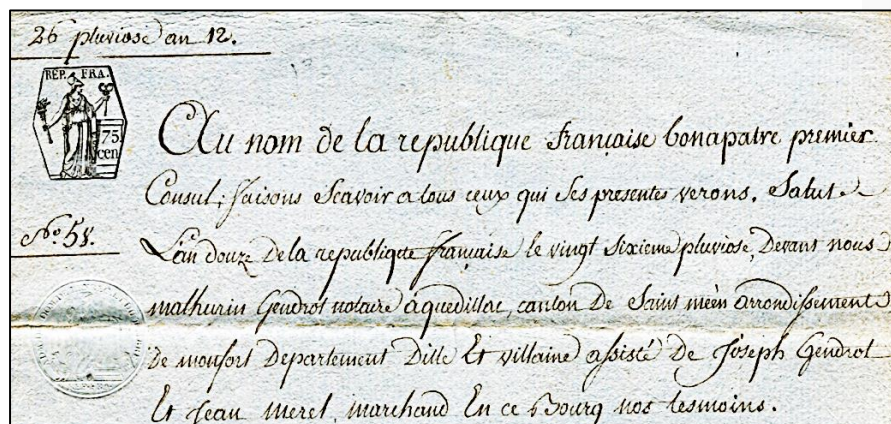 26 pluviose an 12.
REP. FRA.
75
cen
Au nom de la republique française bonapatre premier
Consul; faisons Scavoir a tous ceux qui Ses presentes verons. Salut
No. 58.
L'an douze de la republique française le vingt Sixieme pluviose, Devant nous
mathurin Gendrot notaire à quedillac, canton De Saint méen arrondissement
De monfort Departement Dille Et villaine assisté De Joseph Gendrot
Et Jean merel, marchand En ce Bourg nos tesmoins.